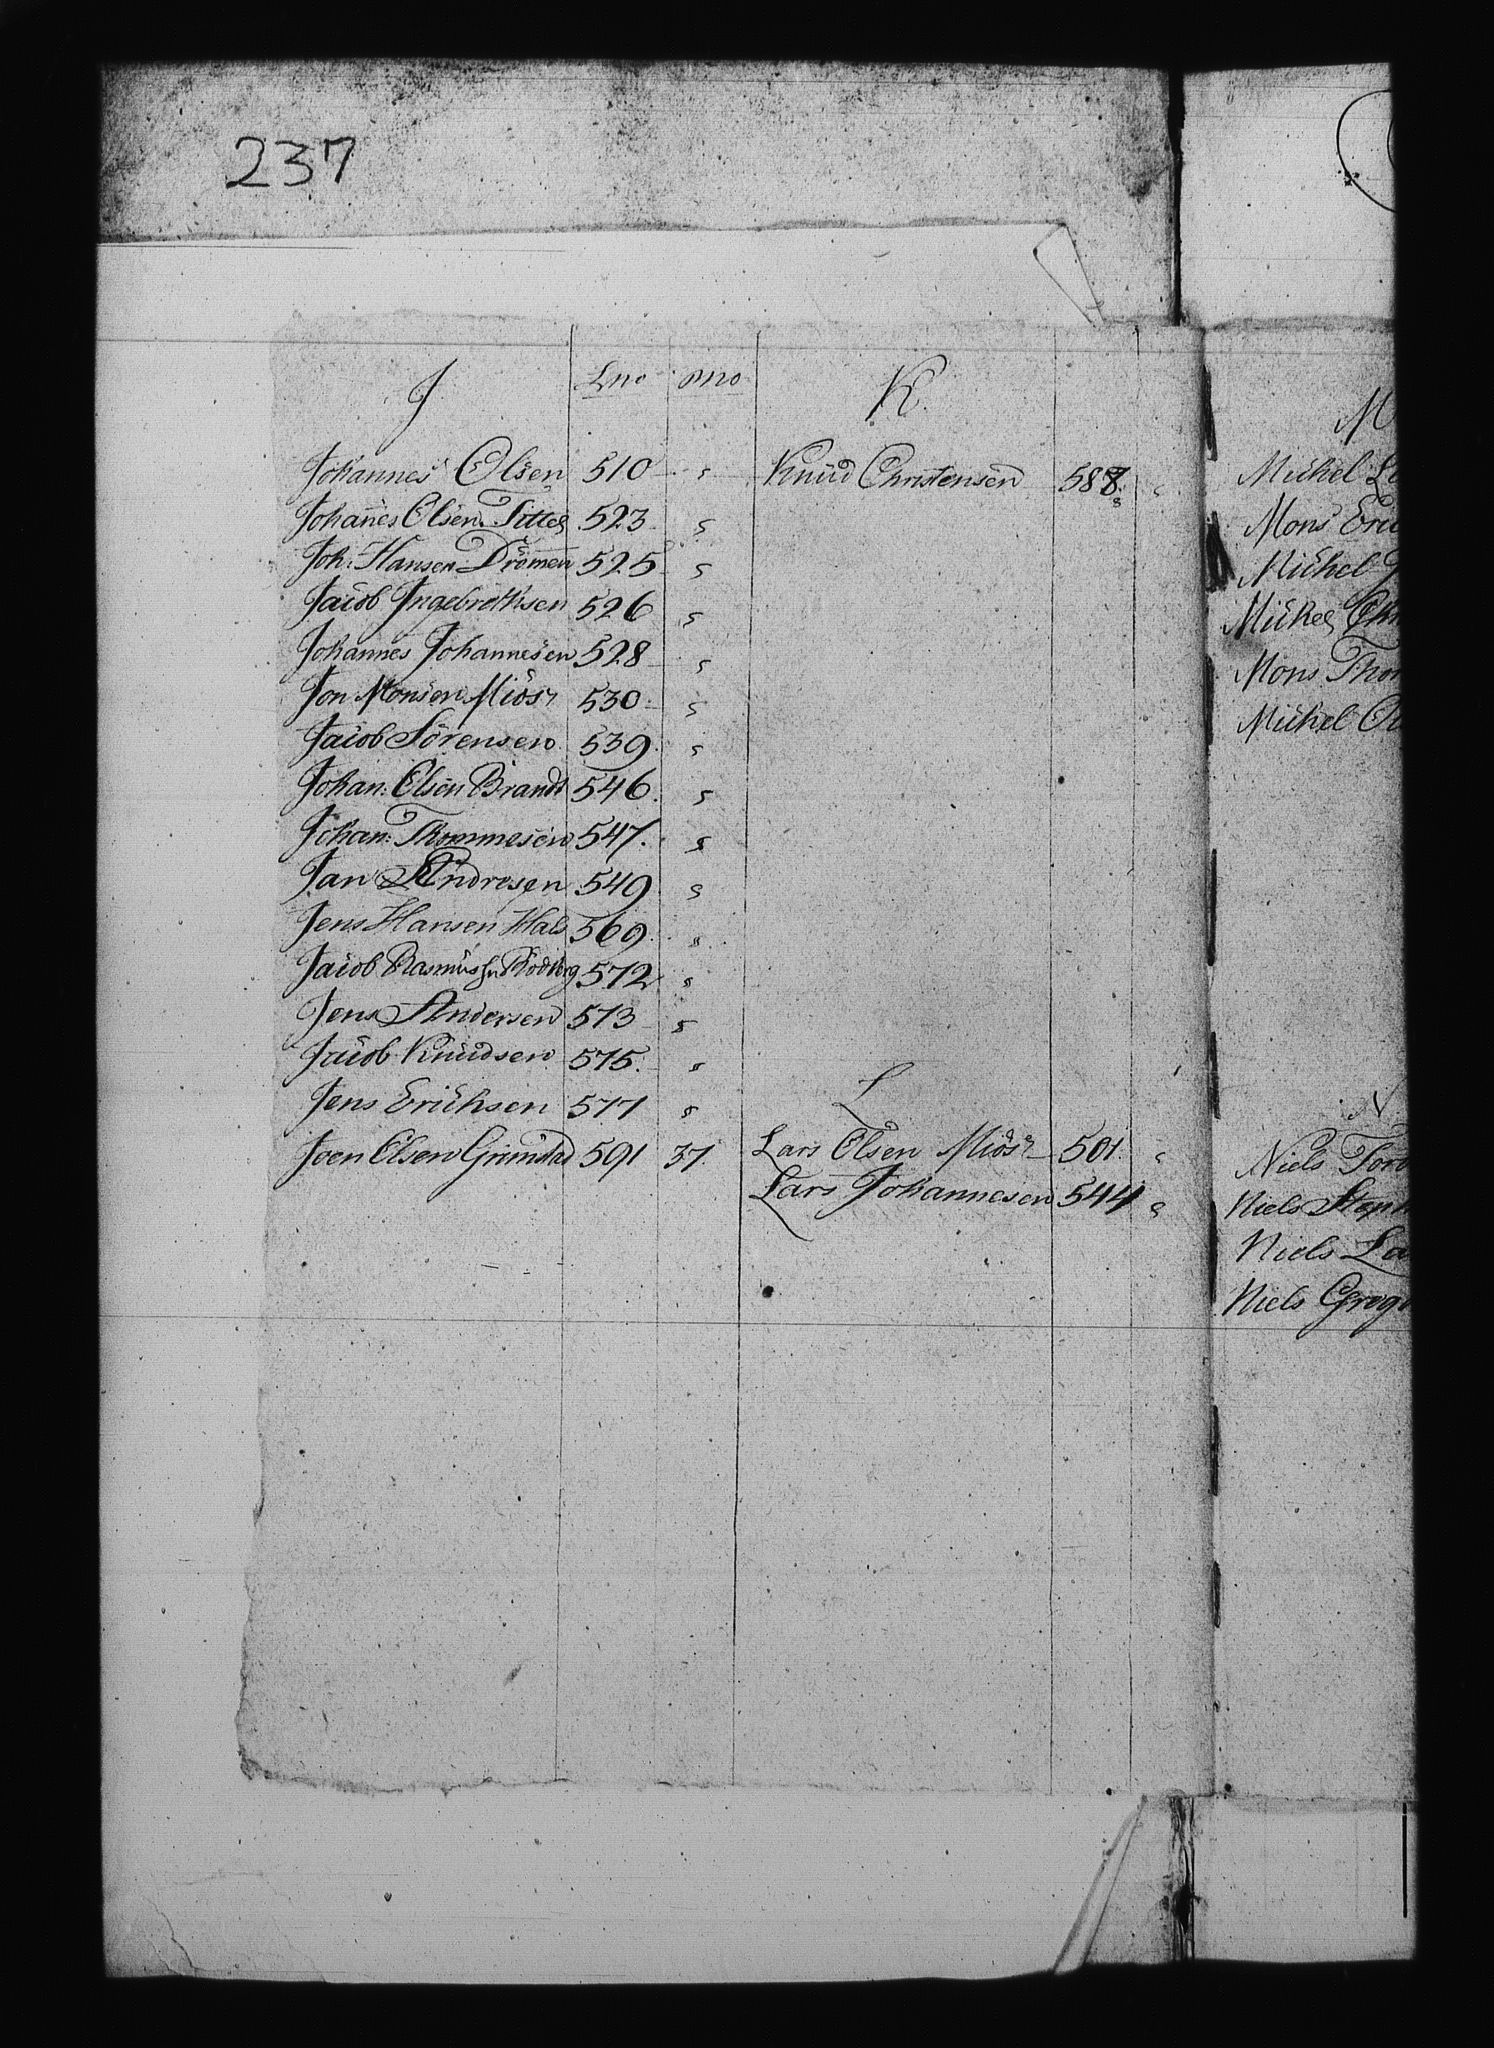 237
J Lno No
Johannes Olsen 510 "
Johañes Olsen Tittes 523 "
Joh: Hansen Dromen 525 "
Jacob Ingebrethsen 526 "
Johannes Johannesen 528 "
Jon Monsen Miös 530 "
Jacob Sörensen 539 "
Johan: Olsen Brandt 546 "
Johan: Thommesen 547 "
Jan Andresen 549 "
Jens Hansen Hals 569 "
Jacob Rasmusen Rodberg 572 "
Jens Andersen 573 "
Jacob Knudsen 575 "
Jens Erichsen 577 "
Joen Olsen Grimstad 591 37
K
Knud Christensen 588 "
L
Lars Olsen Miös 501 "
Lars Johannesen 544 "
M
Michel
Mons Eric
Michel
Michel Chr
Mons Thom
Michel
N
Niels Tor
Niels Steph
Niels La
Niels Greg